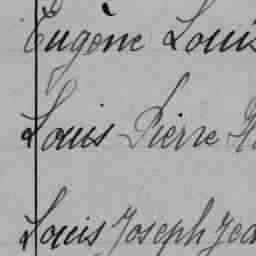 Eugène Louis
Louis Pierre
Louis Joseph Jea